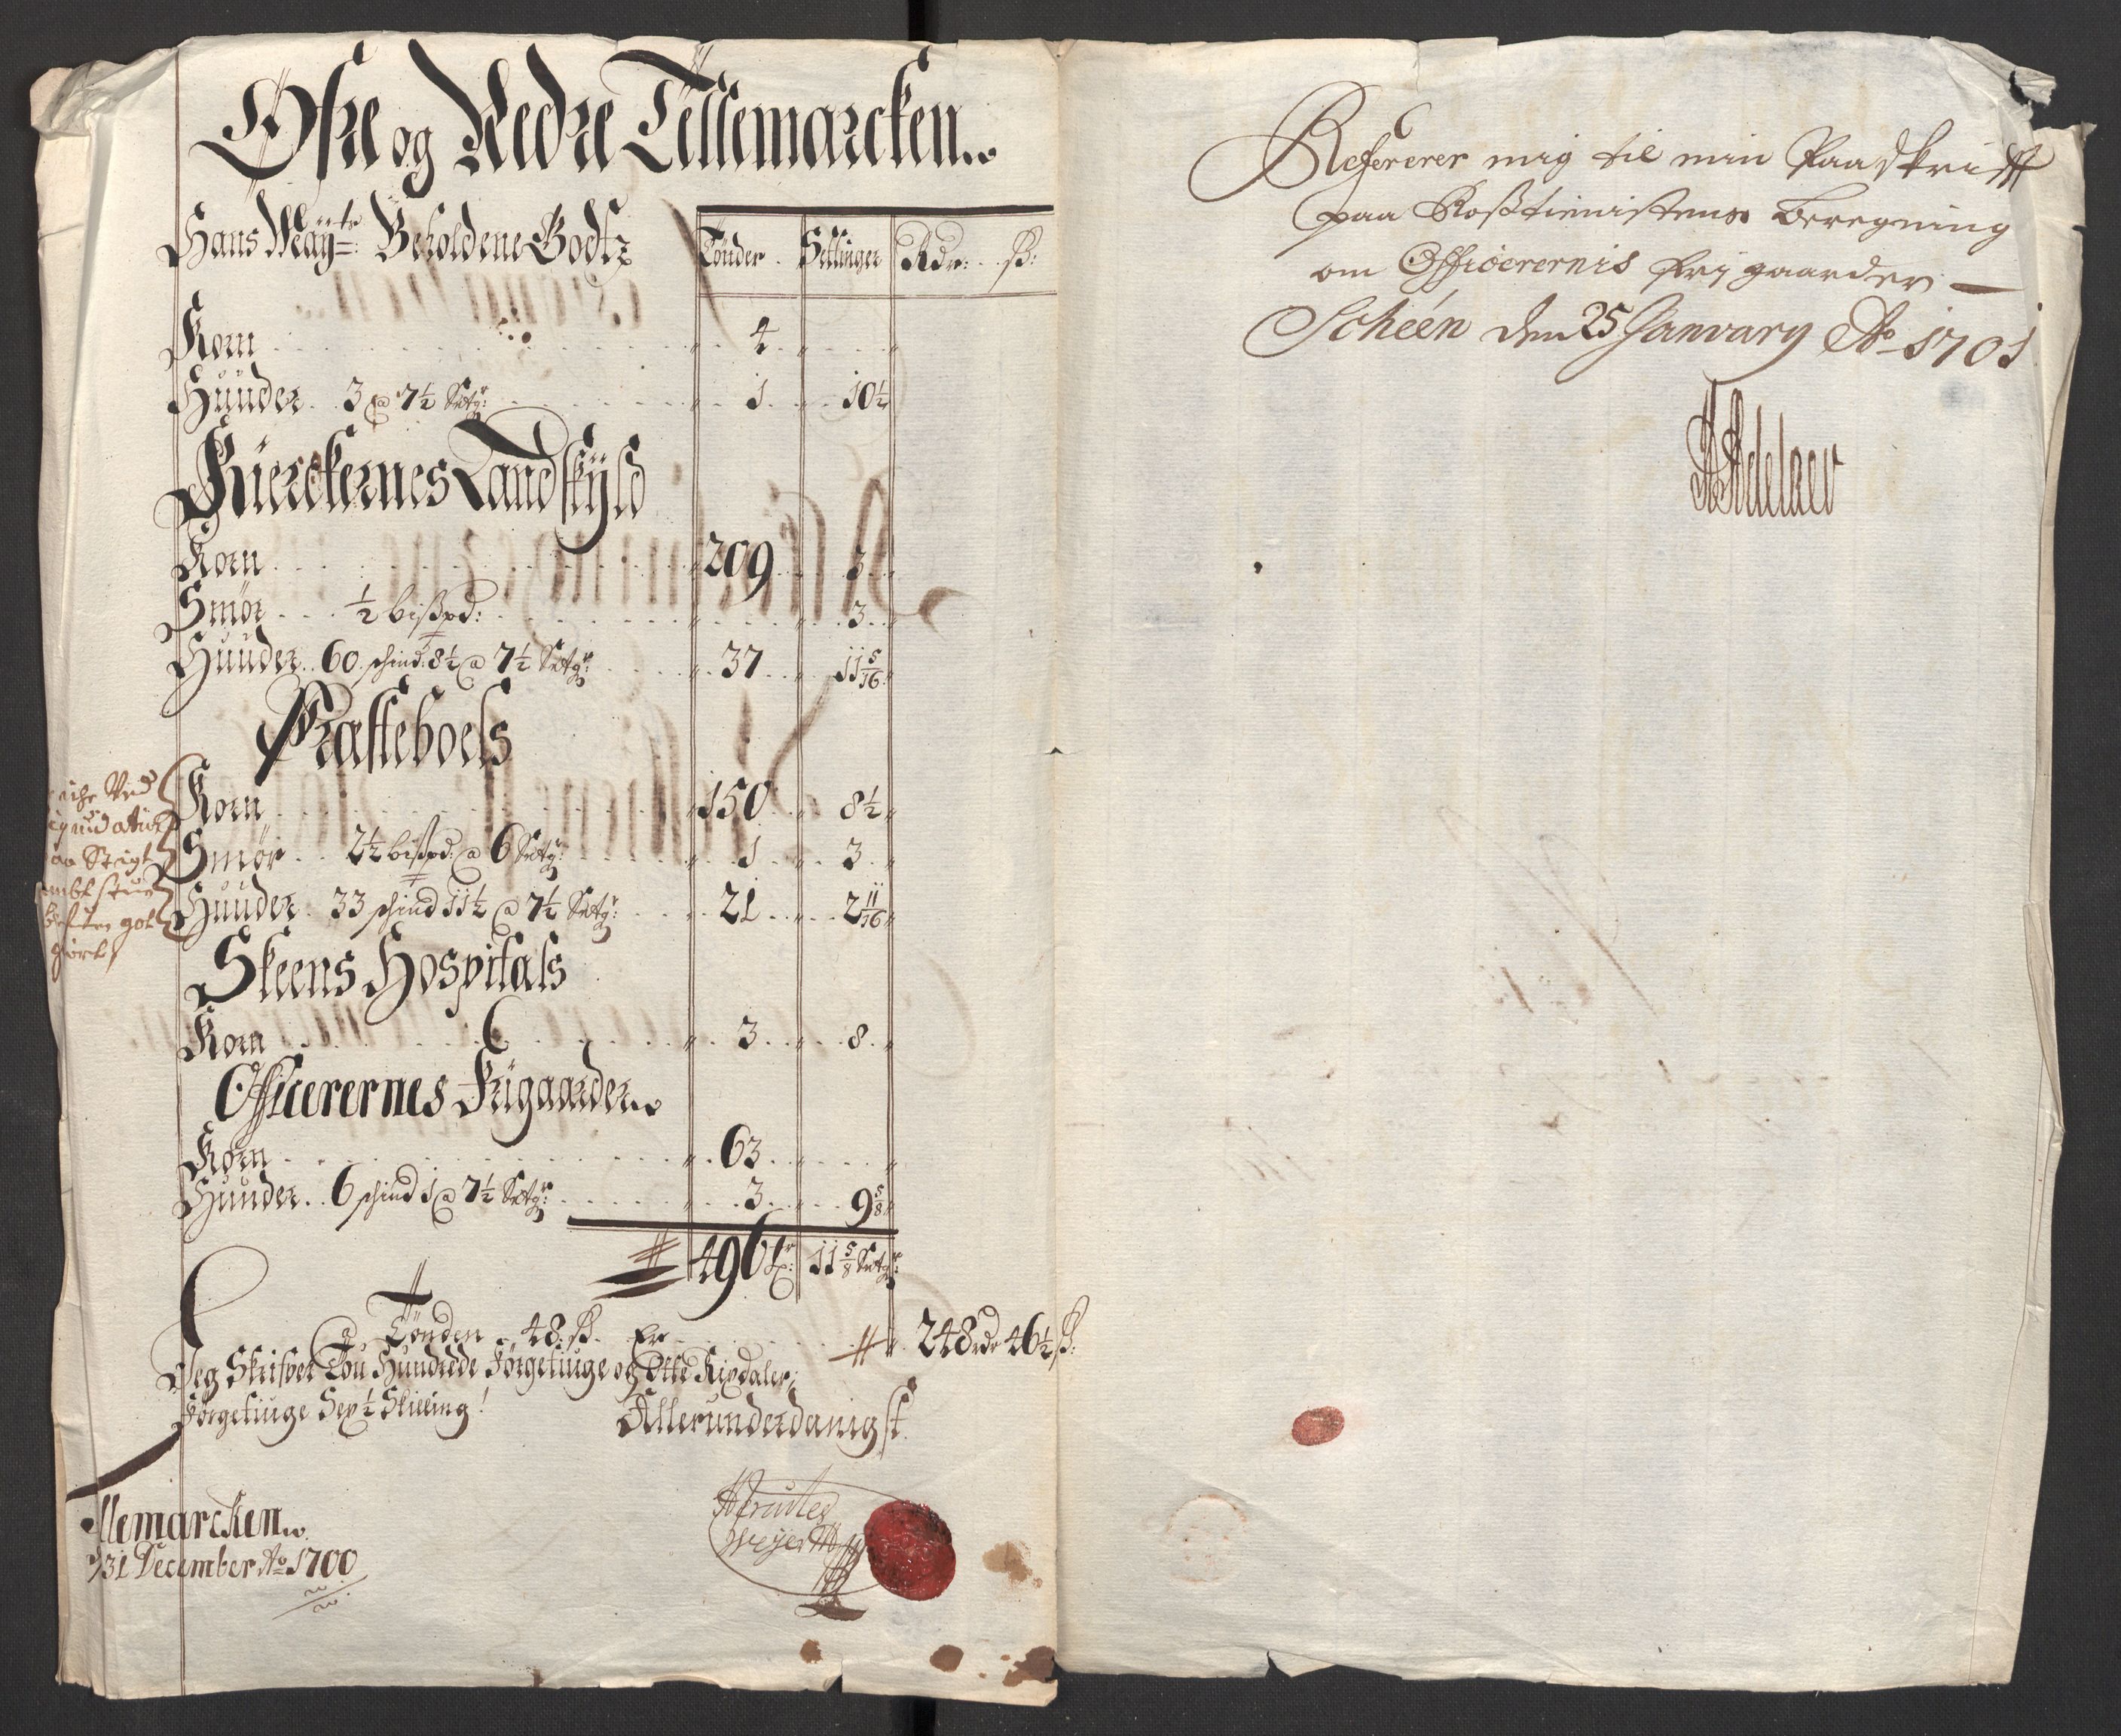 Øfre og Nedre Tellemarcken
Hans Mayts: Beholdene Godtz
Tønder Settinger Rdr: ß:
Korn 4
Huuder 3 a 7½ Sætgr: 1 10½
Kierckernes Landskyld
Korn 209 3
Smør ½ bißpd: 3
Huuder 60 schind: 8½ a 7½ Sætgr: 37 11 5/16
Præsteboels
Korn 150 8½
Smør 2½ bißpd: a 6 Sætgr: 1 3
Huuder 33 schind 11½ a 7½ Sætgr: 21 2 11/16
Skeens Hospitals
Korn 3 8
Officerernes Frigaarder
Korn 63
Huuder 6 schind 1 a 7½ Sætgr: 3 9 5/8
496 Tr: 11 5/8 Sætgr:
Tønden a 48 ß Er 248 rdr 46½ ß:
Jeg Skrifver Tou Hundrede Førgetiuge og Otte Rixdaler,
Førgetiuge Sex ½ Skilling!
Allerunderdanigst
llemarcken
31 December Ao 1700
Refererer mig til min Paaskrifft
paa Roßtienistens Beregning
om Officerernis frj gaarder
Scheén den 25 January Ao 1701
Adelaer